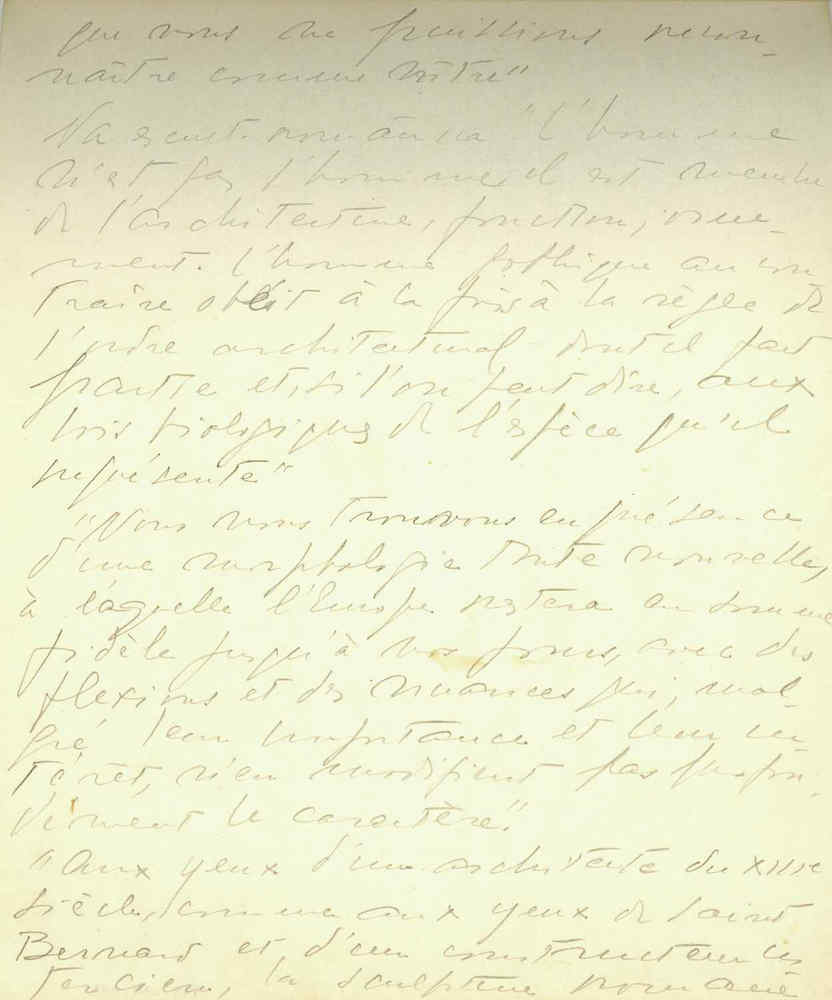 que nous ne puissions recon-
naître comme nôtre"
"L'homme
n'est pas l'homme, il est meuble
de l'architecture, fonction, orne-
ment. L'homme gothique au con
traire obéit à la fois à la règle de
l'ordre architectural dont il fait
partie et, si l'on peut dire, aux
lois biologiques de l'espèce qu'il
représente"
"Nous nous trouvons en présence
d'une morphologie toute nouvelle,
à laquelle l'Europe restera en somme
fidèle jusqu'à nos jours, avec des
flexions et des nuances qui, mal-
gré leur importance et leur in-
térêt, n'en modifient pas profon-
dément le caractère."
"Aux yeux d'un architecte du XIIIe
siècle, comme aux yeux de Saint
Bernard et d'un constructeur cis
tercien, la sculpture romane